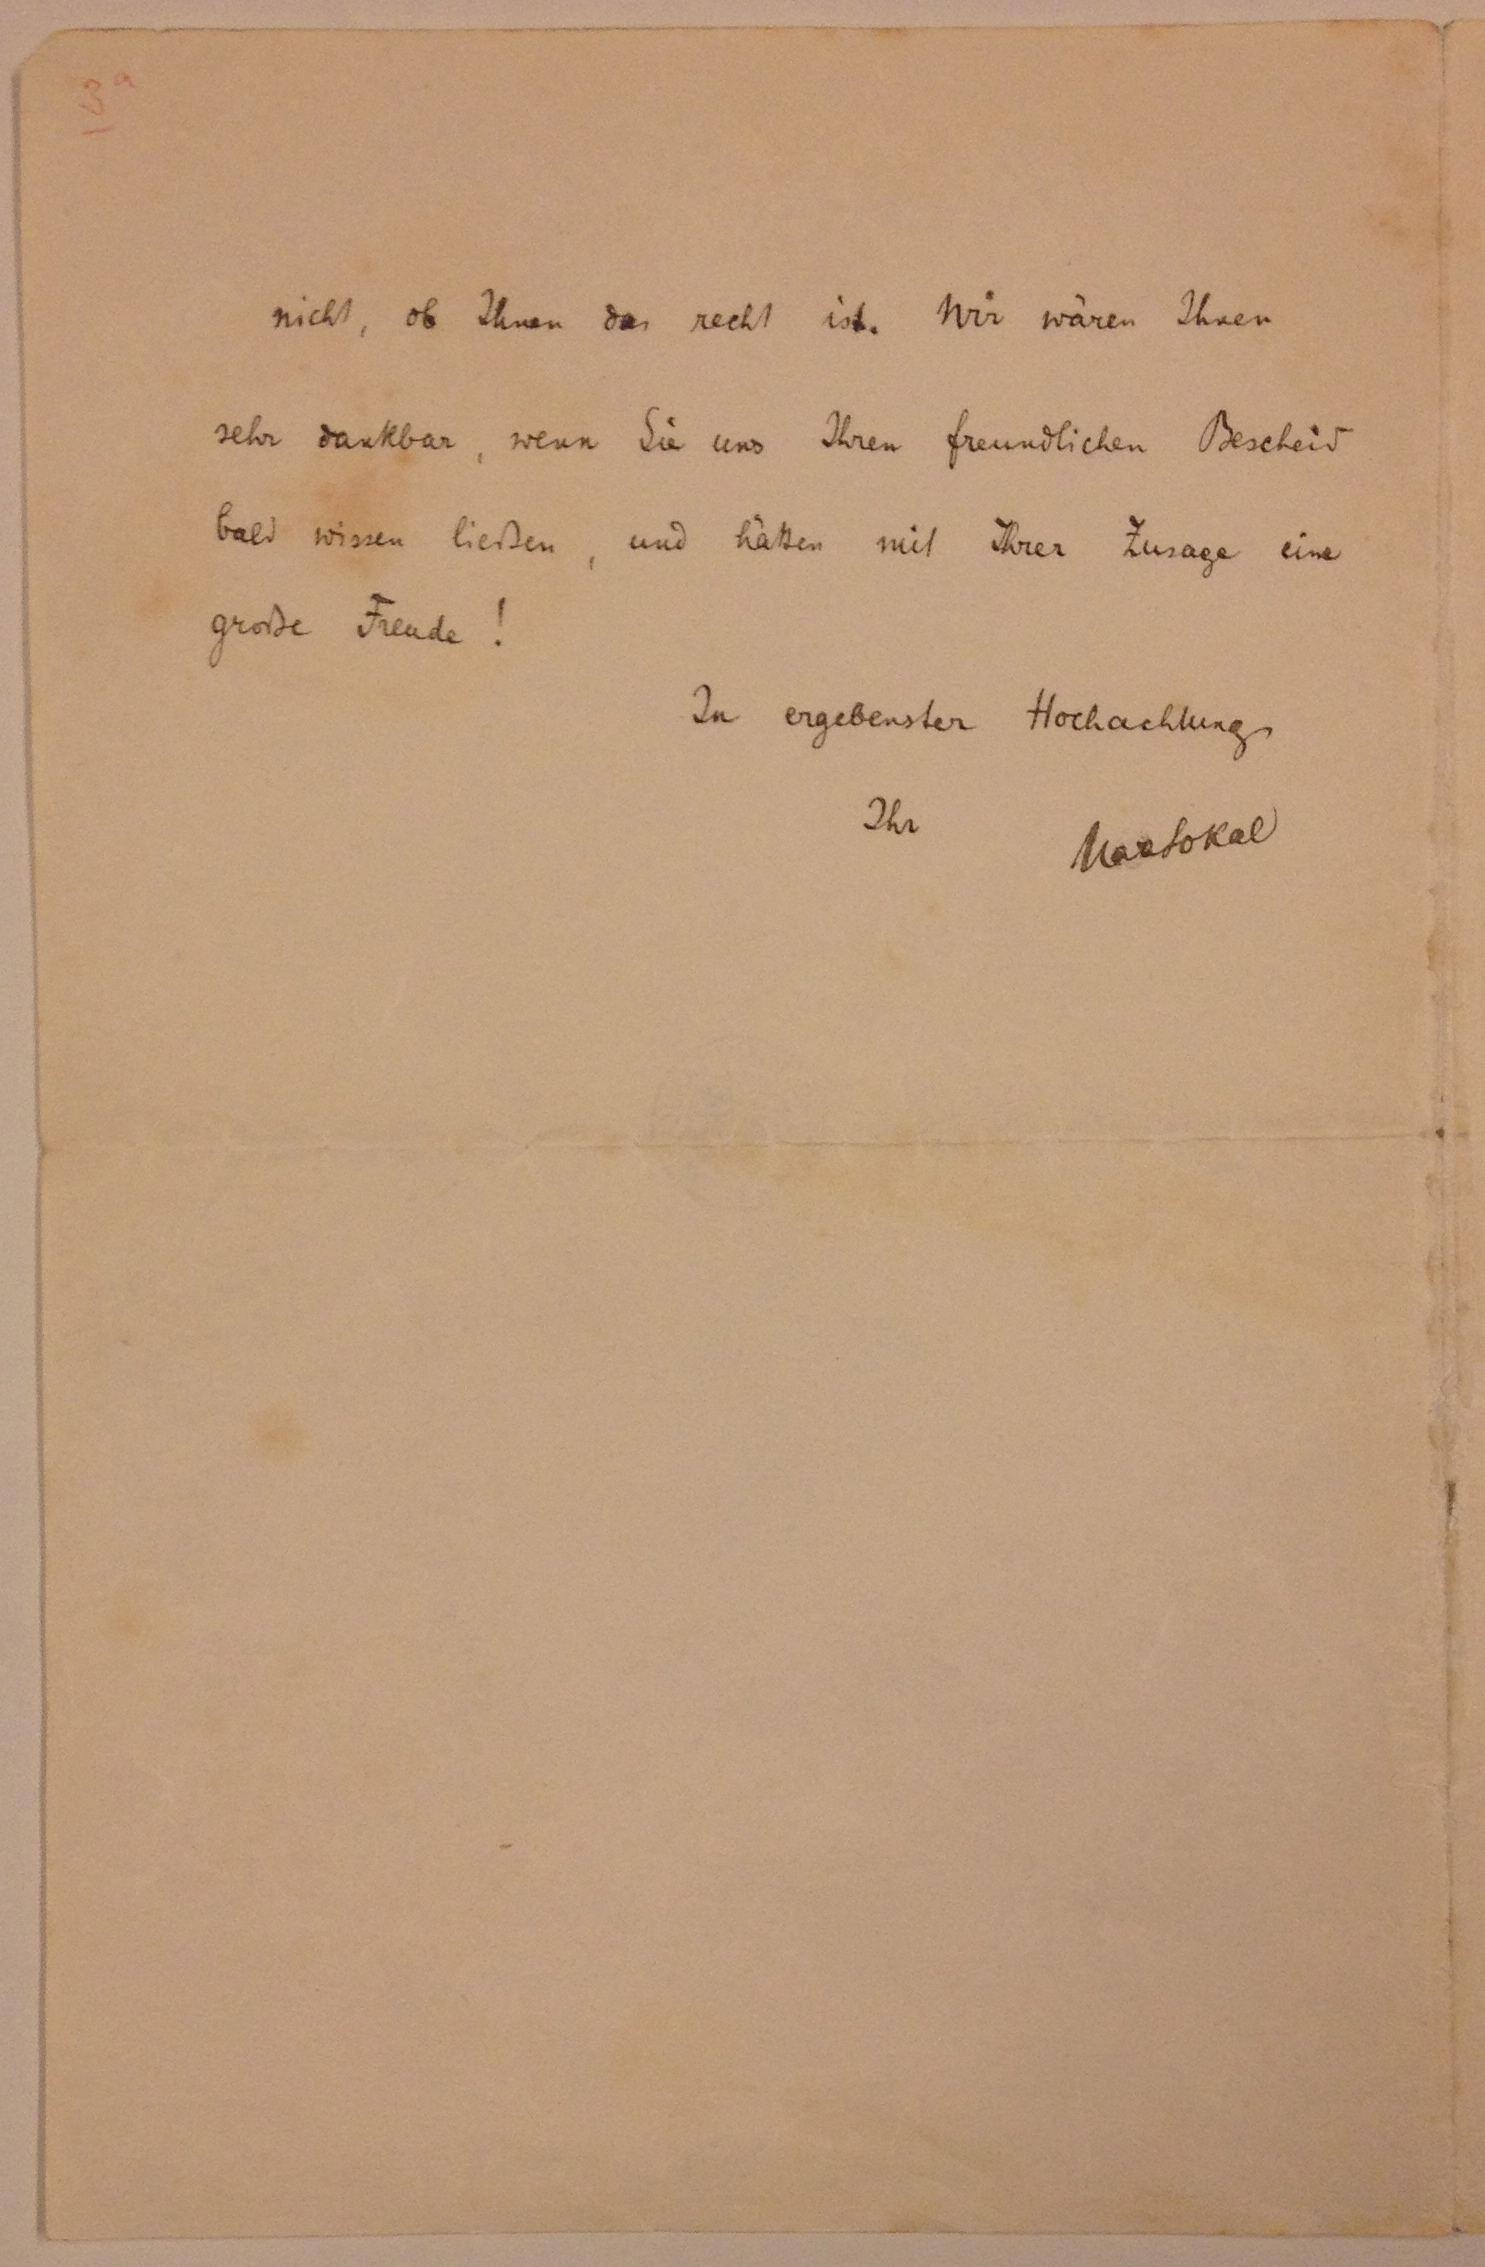 nicht, ob Ihnen das recht ist. Wir wären Ihnen
sehr dankbar, wenn Sie uns Ihren freundlichen Bescheid
bald wissen ließen, und hätten mit Ihrer Zusage eine
große Freude!
In ergebenster Hochachtung
Ihr